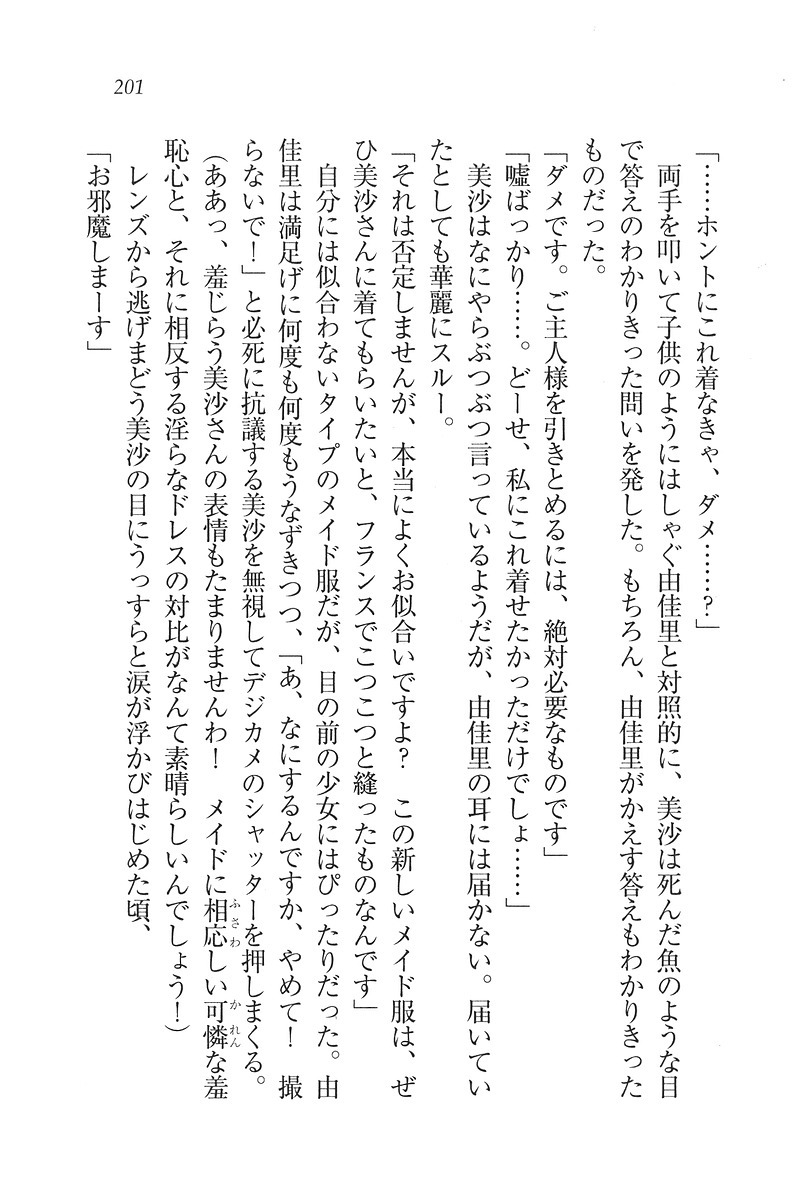 201
「……ホントにこれ着なきゃ、ダメ……?」
　両手を叩いて子供のようにはしゃぐ由佳里と対照的に、美沙は死んだ魚のような目
で答えのわかりきった問いを発した。もちろん、由佳里がかえす答えもわかりきった
ものだった。
「ダメです。ご主人様を引きとめるには、絶対必要なものです」
「嘘ばっかり……。どーせ、私にこれ着せたかっただけでしょ……」
　美沙はなにやらぶつぶつ言っているようだが、由佳里の耳には届かない。届いてい
たとしても華麗にスルー。
「それは否定しませんが、本当によくお似合いですよ?　この新しいメイド服は、ぜ
ひ美沙さんに着てもらいたいと、フランスでこつこつと縫ったものなんです」
　自分には似合わないタイプのメイド服だが、目の前の少女にはぴったりだった。由
佳里は満足げに何度も何度もうなずきつつ、「あ、なにするんですか、やめて!　撮
らないで!」と必死に抗議する美沙を無視してデジカメのシャッターを押しまくる。
(ああっ、羞じらう美沙さんの表情もたまりませんわ!　メイドに相応しい可憐な羞
恥心と、それに相反する淫らなドレスの対比がなんて素晴らしいんでしょう!)
　レンズから逃げまどう美沙の目にうっすらと涙が浮かびはじめた頃、
「お邪魔しまーす」